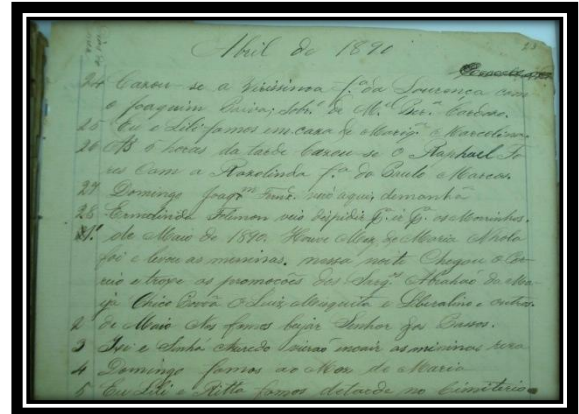 Abril de 1890
23
24 Cazou-se a f.ª da Lourença com
o Joaquim Paiva, Sobr.º de M.ª Bar.ª Cardozo.
25 Eu e Lili fomos em caza de Mariq.ª Marcolina
26 As 6 horas da tarde Cazou-se o Raphael To
res Com a Rozolinda f.ª do Paulo Marcos.
27 Domingo Joaq.m veio aqui, demanhã
28 Ermelinda veio dispidir p.ª ir p.ª os Moinhos.
1.º de Maio de 1890. Houve Mez de Maria Nhola
foi e levou as meninas. nessa noite Chegou o Cor
reio e trope as promoções dos Sarg.tos Abrahão da
Chico Luiz Mesquita e Liberalino e outros
2 de Maio Nós fomos beijar Senhor dos Passos.
3 e Sinhá Macedo vierão as mininas
4 Domingo fomos ao Mez de Maria
5 Eu Lili e Ritta fomos detarde no Cimiterio